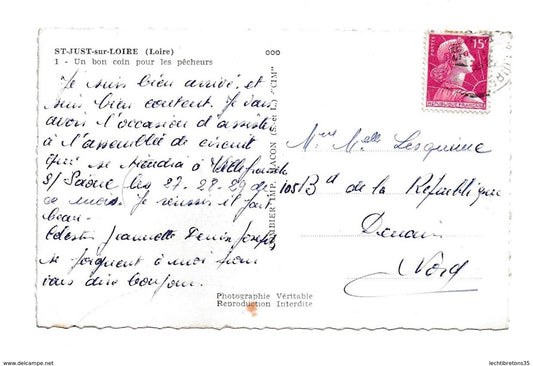 ST-JUST-sur-LOIRE (Loire)
1 - Un bon coin pour les pêcheurs
Je suis bien arrivé et
suis bien content. Je vais
avoir l'occasion d'assister
à l'assemblée de circuit
qui se tiendra à Villefranche
s/ Saône les 27-28-29 de
ce mois. Je réussis il fait
beau.
Celestin Jeannette Denis Joseph
se joignent à moi pour
vous dire bonjour.
Photographie Véritable
Reproduction Interdite
COMBIER IMP. MACON (S.-et-L.) "CIM"
15F
POSTES
REPUBLIQUE FRANÇAISE
Mme Melle Lesquime
105 Bd de la République
Denain
Nord
https://www.lechtibretons35